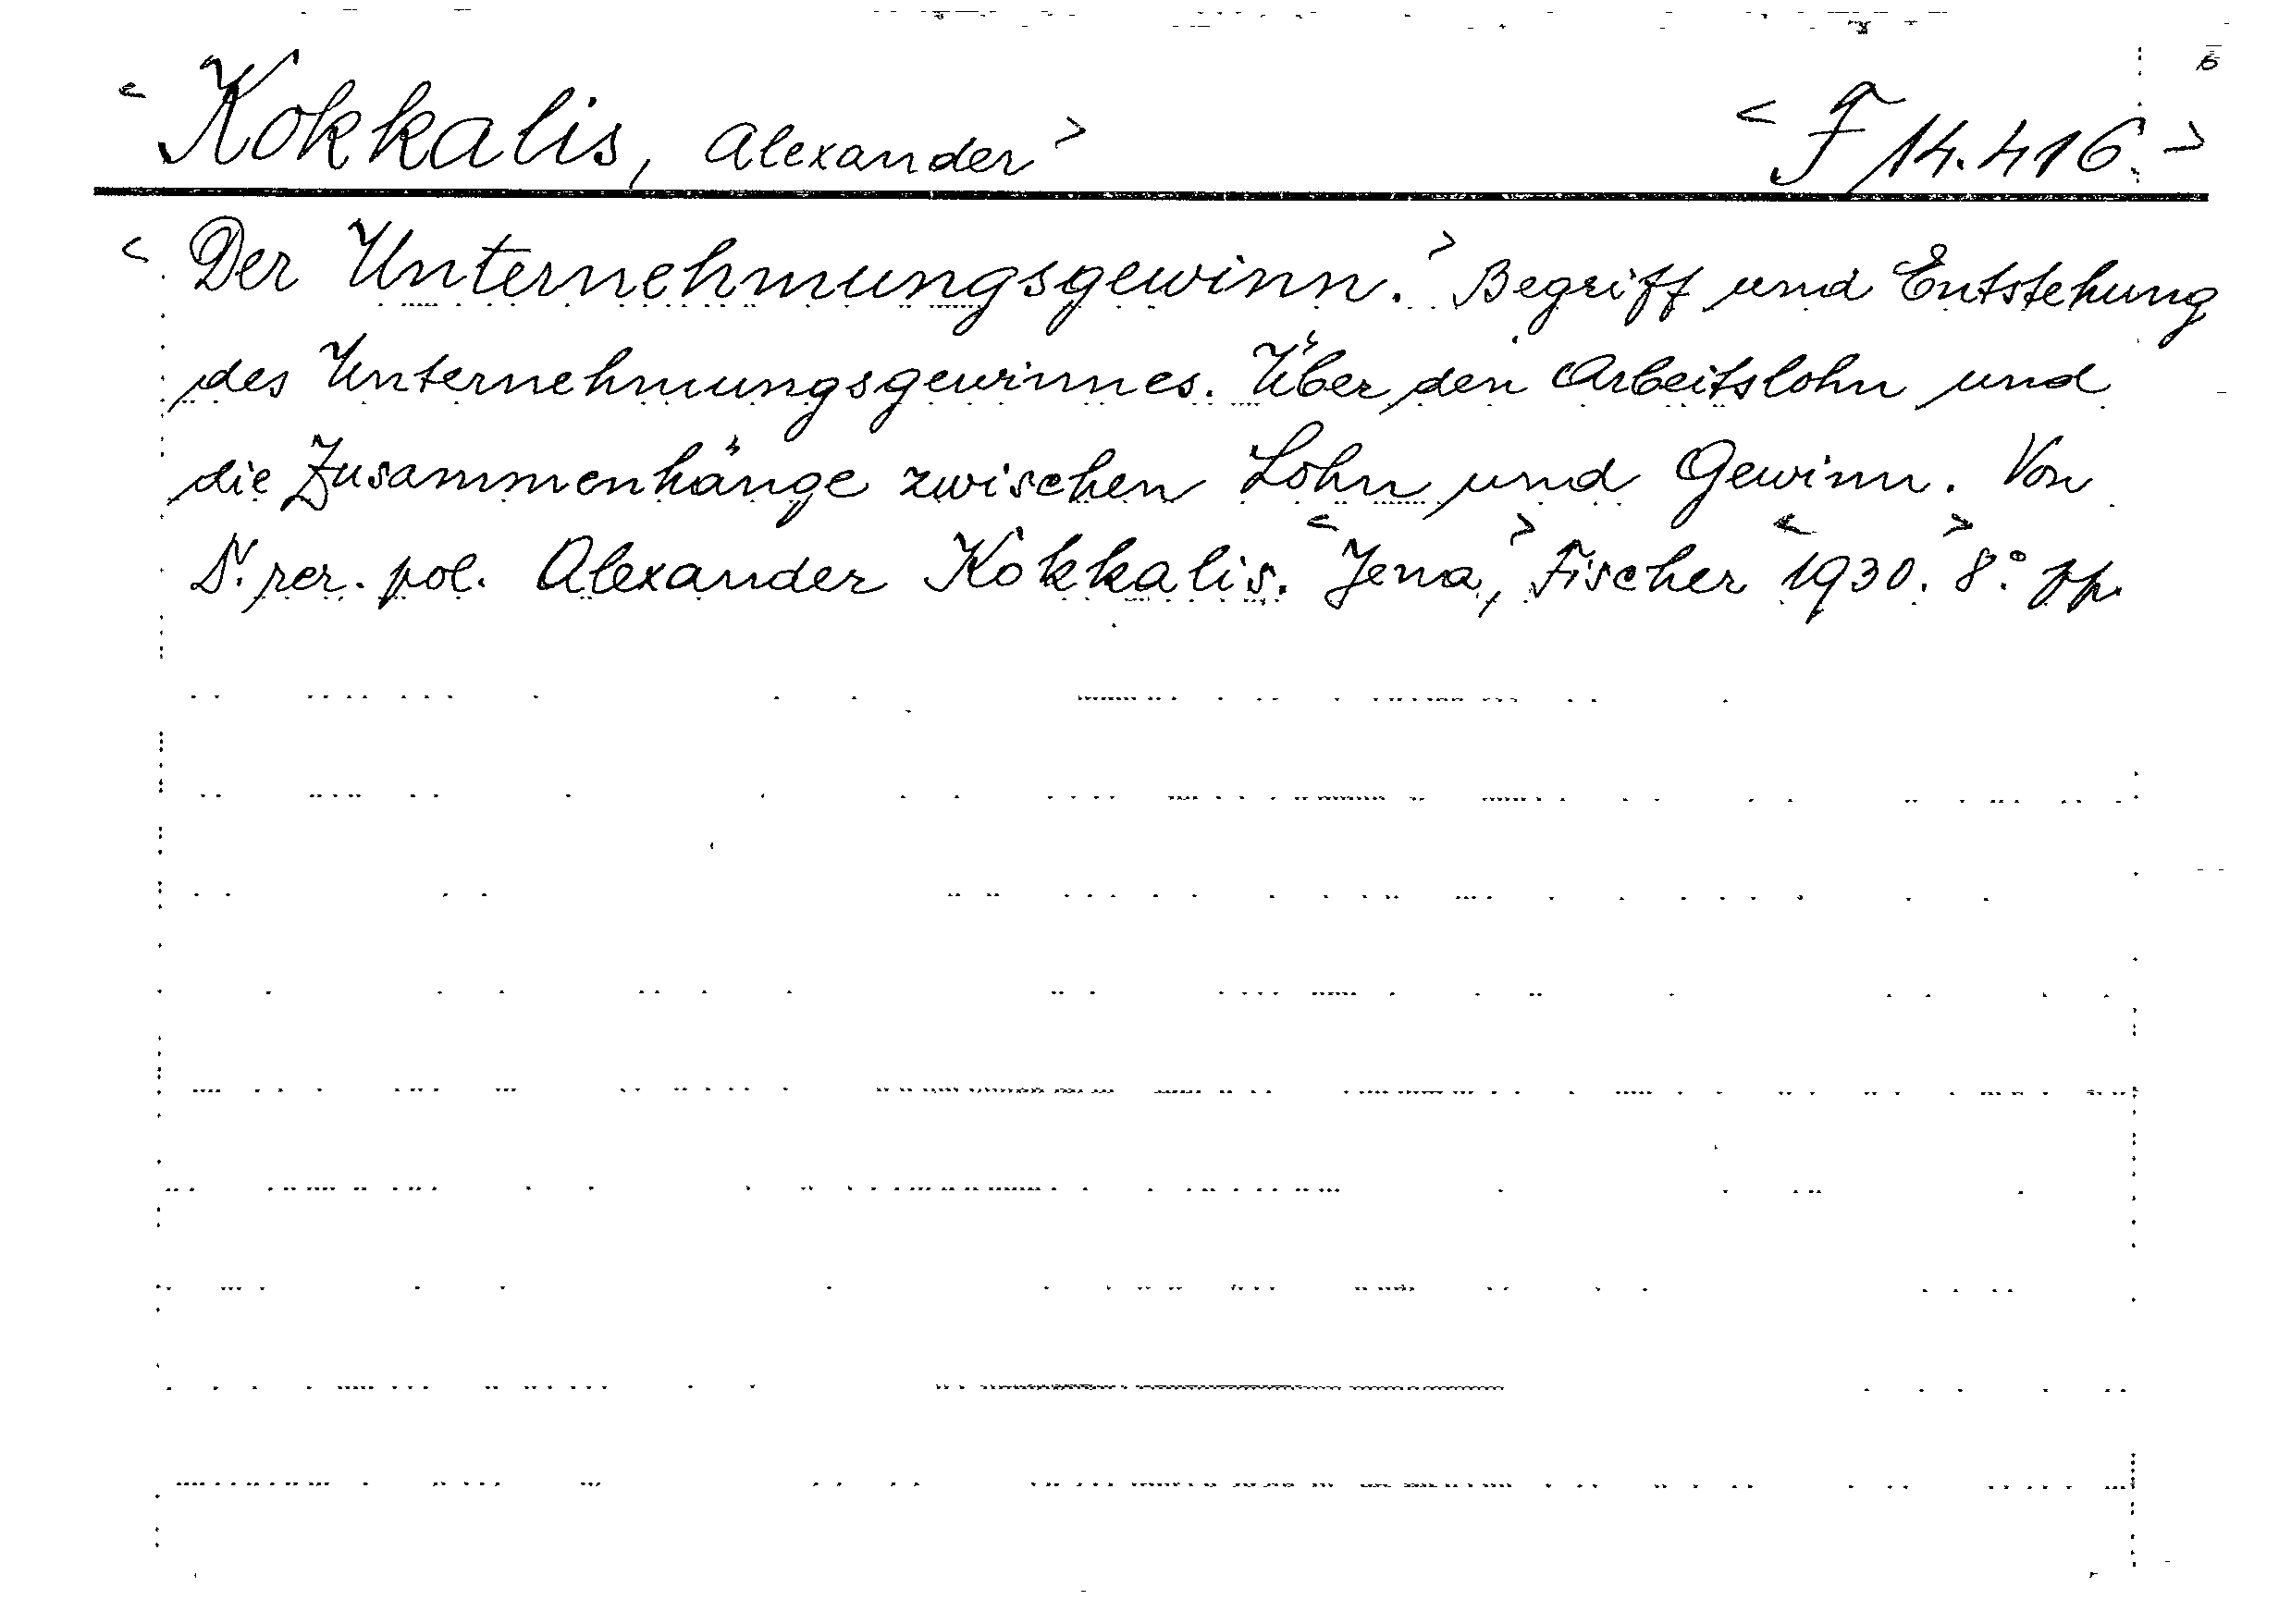 < Kokkalis, Alexander > < F 14.416. >
< Der Unternehmungsgewinn. > Begriff und Entstehung
des Unternehmungsgewinnes. Über den Arbeitslohn und
die Zusammenhänge zwischen Lohn und Gewinn. Von
Dr. rer. pol. Alexander Kokkalis. < Jena, > Fischer < 1930. > 8° pp.